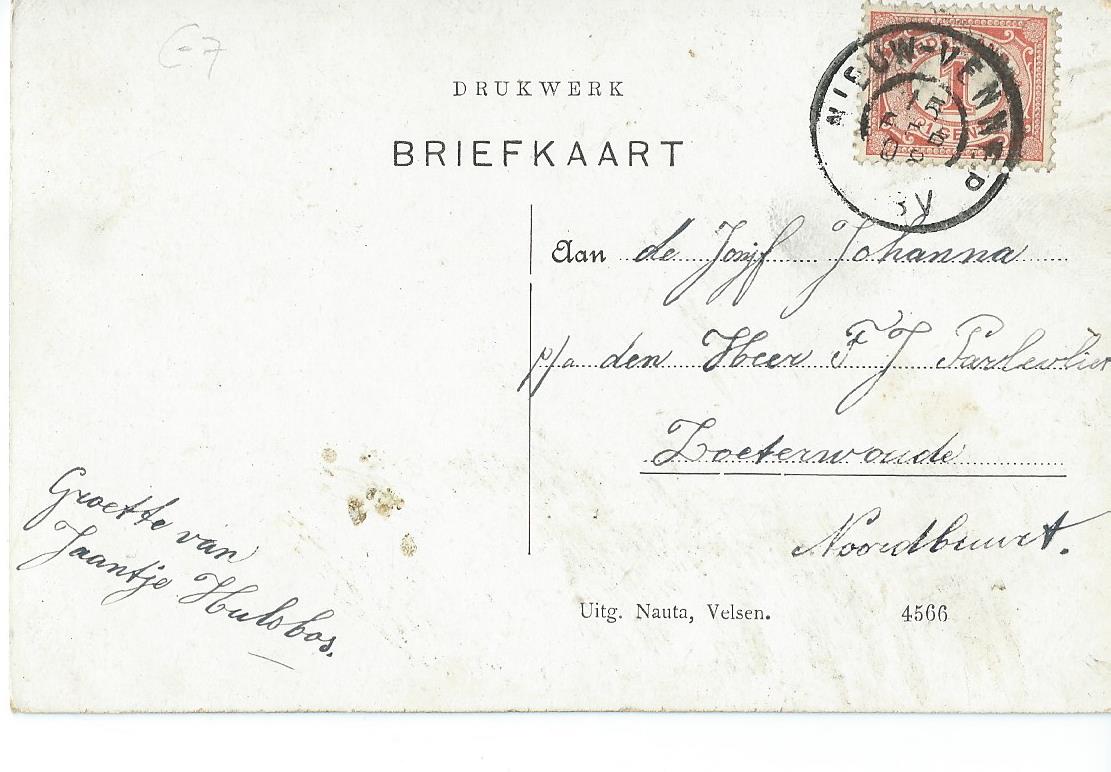 C-7
DRUKWERK
BRIEFKAART
NIEUW-VENNEP
1
Aan de Jonjf Johanna
p/a den Heer F J Parlevliet
Zoeterwoude
Noordbuurt.
Groette van
Jaantje Hulsbos.
Uitg. Nauta, Velsen. 4566